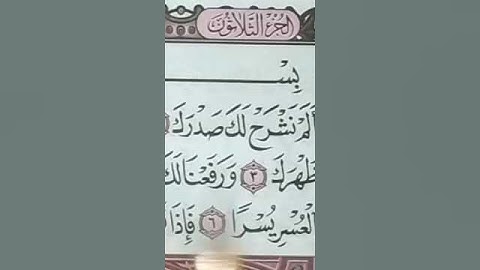 الجزء الثلاثون
بِسْـ
أَلَمْ نَشْرَحْ لَكَ صَدْرَكَ
ظَهْرَكَ ٣ وَرَفَعْنَا لَكَ
الْعُسْرِ يُسْرًا ٦ فَإِذَا